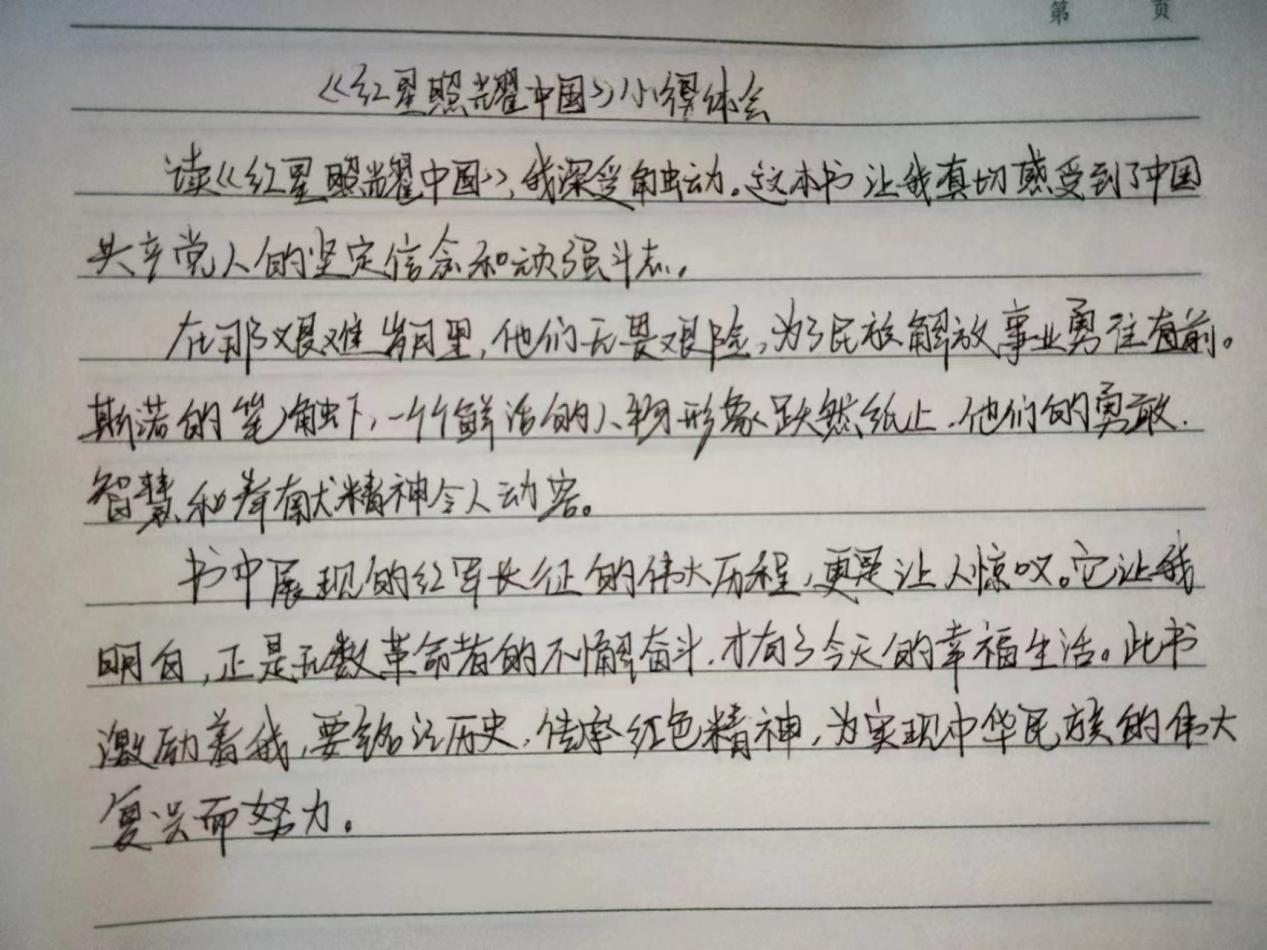 第 页
《红星照耀中国》心得体会
读《红星照耀中国》，我深受触动。这本书让我真切感受到了中国
共产党人的坚定信念和顽强斗志。
在那艰难岁月里，他们无畏艰险，为了民族解放事业勇往直前。
斯诺的笔触下，一个个鲜活的人物形象跃然纸上，他们的勇敢、
智慧和奉献精神令人动容。
书中展现的红军长征的伟大历程，更是让人惊叹。它让我
明白，正是无数革命者的不懈奋斗，才有了今天的幸福生活。此书
激励着我，要铭记历史，传承红色精神，为实现中华民族的伟大
复兴而努力。